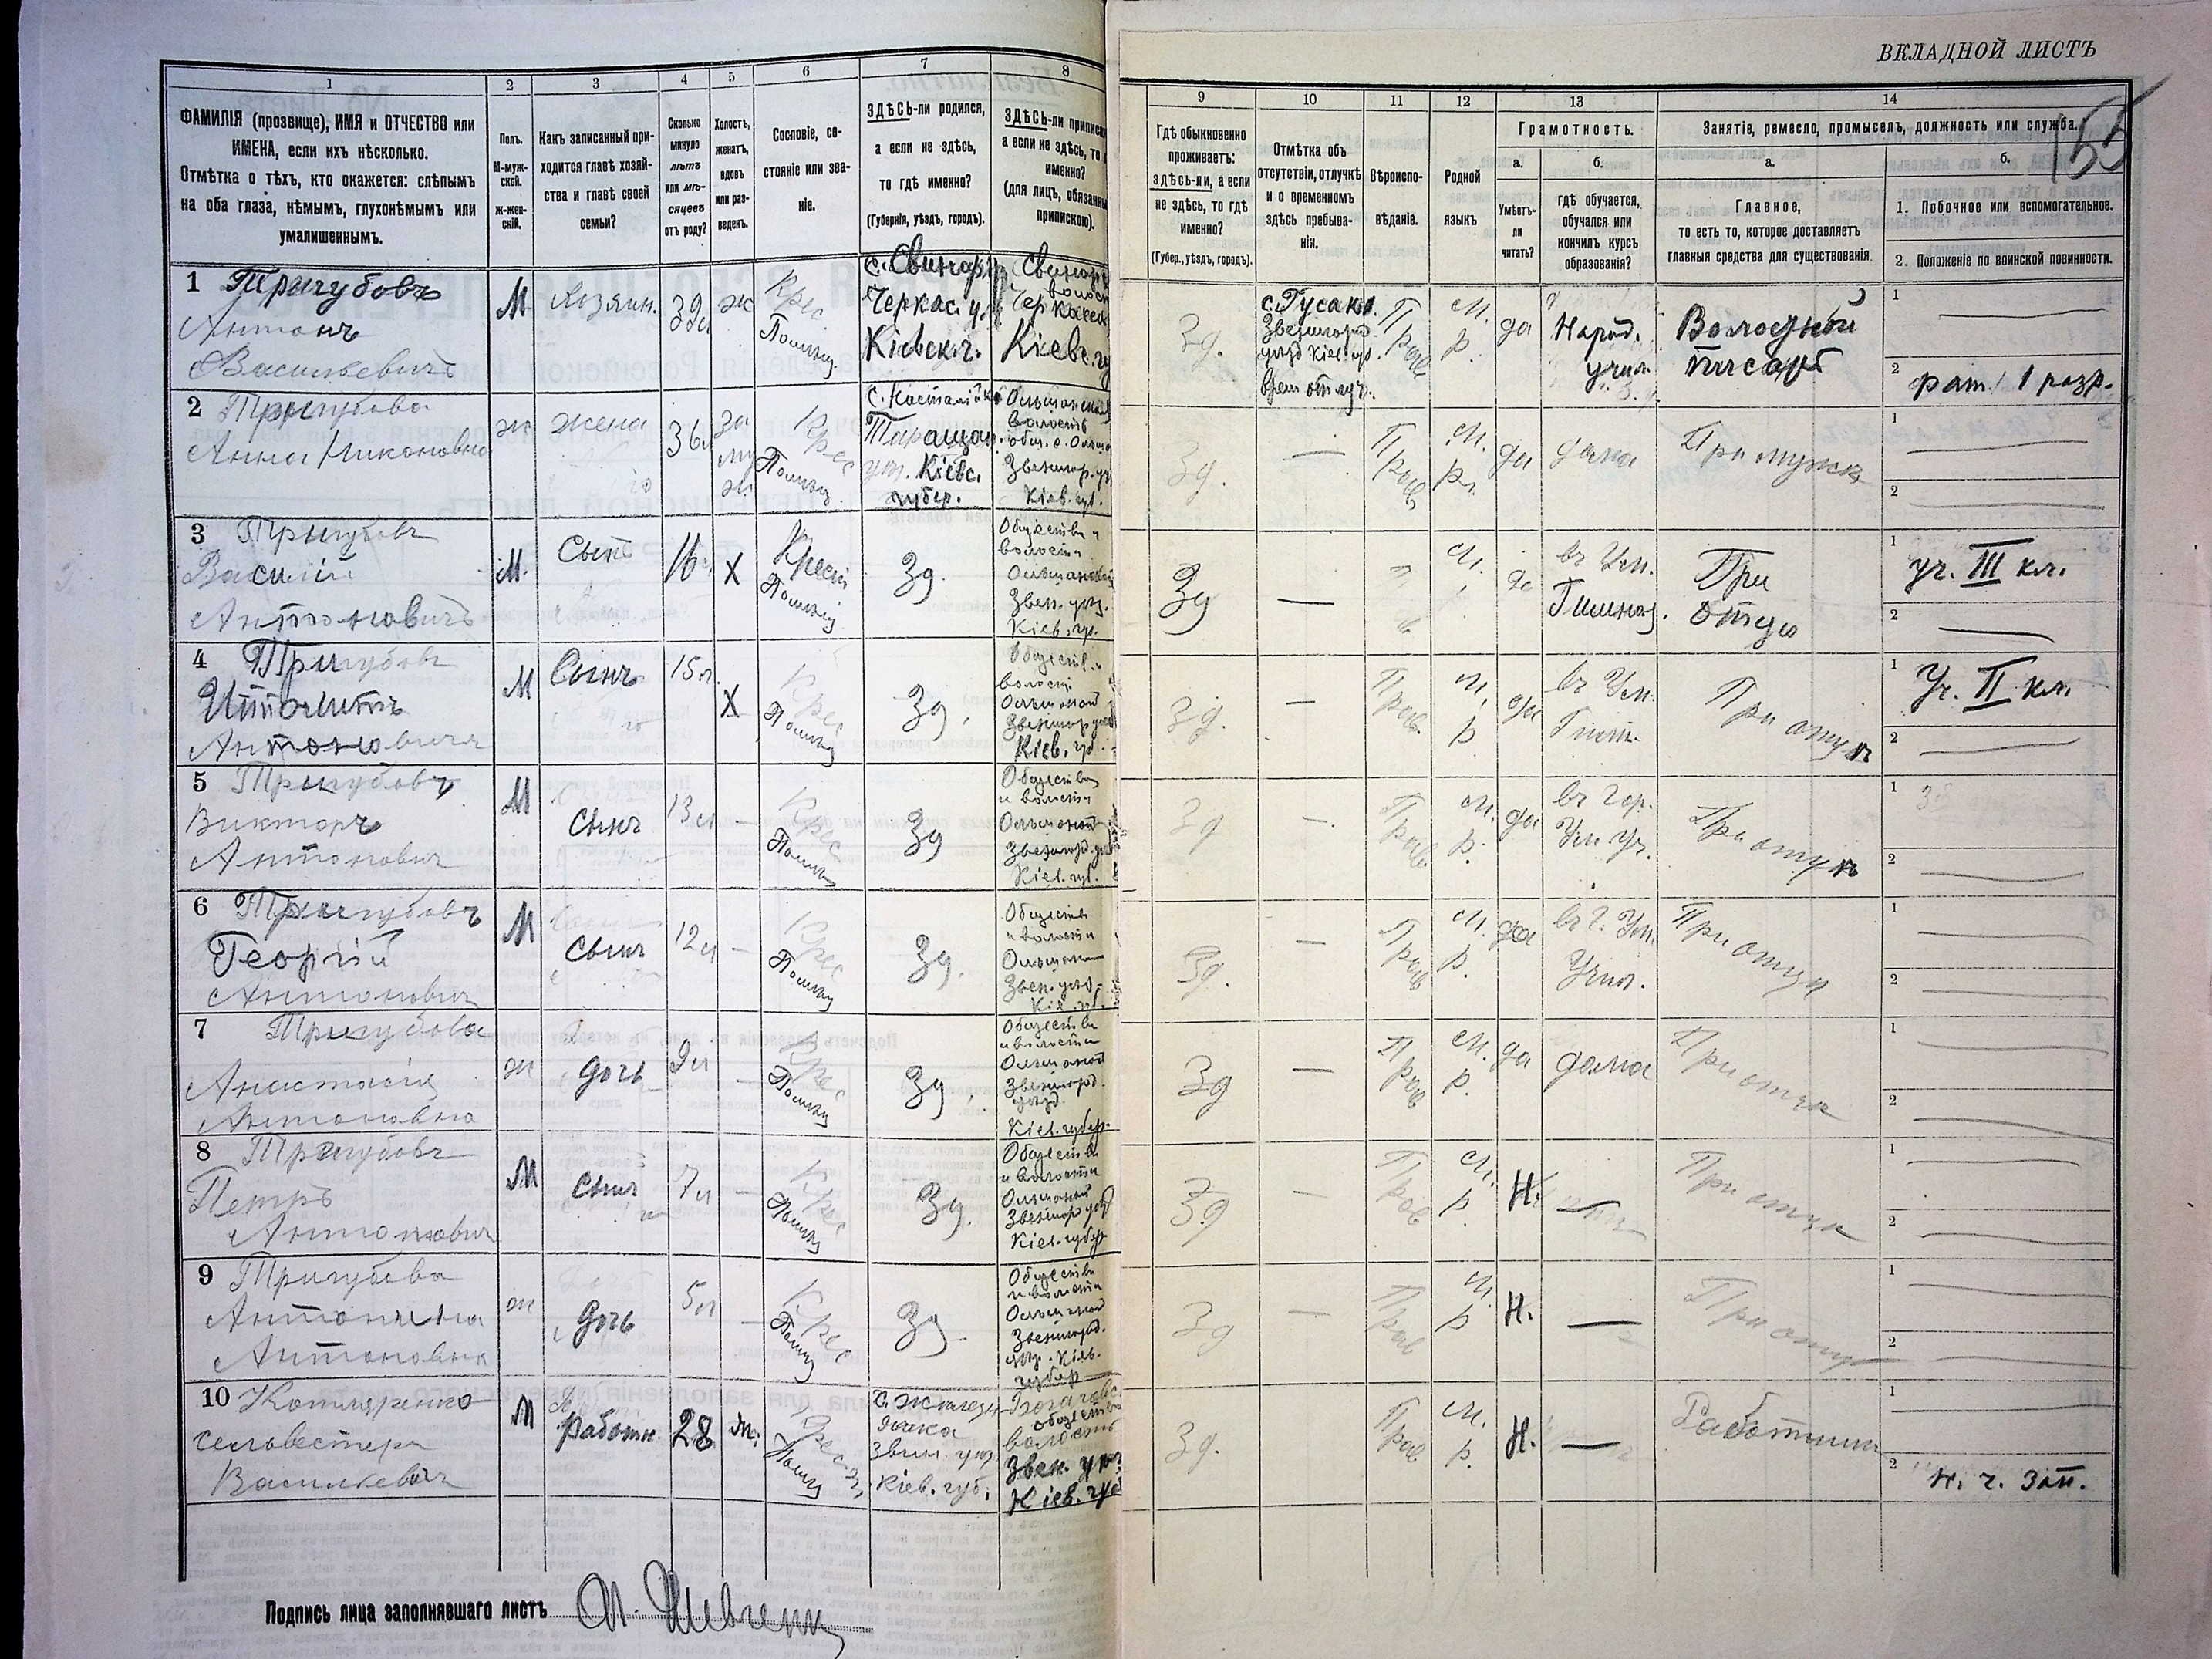 ВКЛАДНОЙ ЛИСТЪ
155
1
2
3
4
5
6
7
8
9
10
11
12
13
14
ФАМИЛІЯ (прозвище), ИМЯ и ОТЧЕСТВО или
ИМЕНА, если ихъ нѣсколько.
Отмѣтка о тѣхъ, кто окажется: слѣпымъ
на оба глаза, нѣмымъ, глухонѣмымъ или
умалишеннымъ.
Полъ.
М-муж-
ской.
ж-жен-
скій.
Какъ записанный при-
ходится главѣ хозяй-
ства и главѣ своей
семьи?
Сколько
минуло
лѣтъ
или мѣ-
сяцевъ
отъ роду?
Холостъ,
женатъ,
вдовъ
или раз-
веденъ.
Сословіе, со-
стояніе или зва-
ніе.
ЗДѢСЬ-ли родился,
а если не здѣсь,
то гдѣ именно?
(Губернія, уѣздъ, городъ).
ЗДѢСЬ-ли приписа
а если не здѣсь, то
именно?
(для лицъ, обязанны
припискою).
Гдѣ обыкновенно
проживаетъ:
здѣсь-ли, а если
не здѣсь, то гдѣ
именно?
(Губер., уѣздъ, городъ).
Отмѣтка объ
отсутствіи, отлучкѣ
и о временномъ
здѣсь пребыва-
ніи.
Вѣроиспо-
вѣданіе.
Родной
языкъ
Грамотность.
а.
Умѣетъ-
ли
читать?
б.
гдѣ обучается,
обучался или
кончилъ курсъ
образованія?
Занятіе, ремесло, промыселъ, должность или служба.
а.
Главное,
то есть то, которое доставляетъ
главныя средства для существованія.
б.
1. Побочное или вспомогательное.
2. Положеніе по воинской повинности.
1 Тригубовъ
Антонъ
Васильевичъ
М
Хозяин.
39л
ж
Крес
Помѣщ.
с. Свинар
Черкас. у.
Кіевск. г.
Зд.
с. Гусаков.
Звенигород.
уѣзд Кіев. губ.
врем отлуч.
Прав
М. р.
да
Народ.
учил.
Волостной
писарь
1
2 рат. 1 разр.
2 Тригубова
Анна Никоновна
ж
жена
36л
за
муж
Крес
Помѣщ.
Таращан.
уѣз. Кіевс.
губер.
Зд.
—
Прав
М. р.
да
дома
При мужѣ
1
2
3 Тригубовъ
Василій
Антоновичъ
М.
Сынъ
16л
Х
Крест
Помѣщ
Зд.
Общества и
волости
Ольшанской
Звен. уѣз.
Кіев. гу.
Зд
—
М.
да
въ Ум.
Гимназ.
При
отцѣ
1 уч. III кл.
2
4 Тригубовъ
Ипполитъ
Антоновичъ
М
Сынъ
15л.
Х
Крес
Помѣщ
Зд.
Кіев. гу.
Зд.
—
Прав.
М. р
да
въ Ум.
Гимн.
При отцѣ
1 Уч. II кл.
2
5 Тригубовъ
Викторъ
Антонович
М
сынъ
13л
—
Крес
Помѣщ
Зд
Общества
и волости
Кіев. губ.
Зд
—
Прав.
М. р.
да
въ Гор.
Ум Уч.
При отцѣ
1
2
6 Тригубовъ
Георгій
Антонович
М
сынъ
12л
—
Крес
Помѣщ
Зд.
Обществ
и волости
Звен. уѣз.
Кіе. гу.
Зд.
—
Прав
М. р.
да
въ Г. Ум.
Учил.
При отцѣ
1
2
7 Тригубова
Анастасія
Антоновна
ж
дочь
9л
—
Крес
Помѣщ
Зд.
Обществ
и волости
Звенигород.
уѣзд.
Кіев. губер.
Зд
—
Прав
М. р.
да
дома
При отцѣ
1
2
8 Тригубовъ
Петръ
Антонович
М
сынъ
7л
—
Крес
Помѣщ
Зд.
Обществ
и волости
Кіев. губер
Зд
—
Прав
М. р.
Н.
—
При отцѣ
1
2
9 Тригубова
Антонина
Антоновна
ж
дочь
5л
—
Крес
Помѣщ
Зд.
Обществ
и волости
Звенигород.
уѣз. Кіев.
губер
Зд
—
Прав
М. р
Н.
—
При отцѣ
1
2
10 Котляренко
Сельвестеръ
Васильевич
М
работн.
28
ж.
Крес.
Помѣщ
Звен. уѣз.
Кіев. губ.
волость
Звен. уѣз.
Кіев. губ
Зд.
Прав
М. р.
Н.
—
Работник
1
2 н. ч. зап.
Подпись лица заполнявшаго листъ